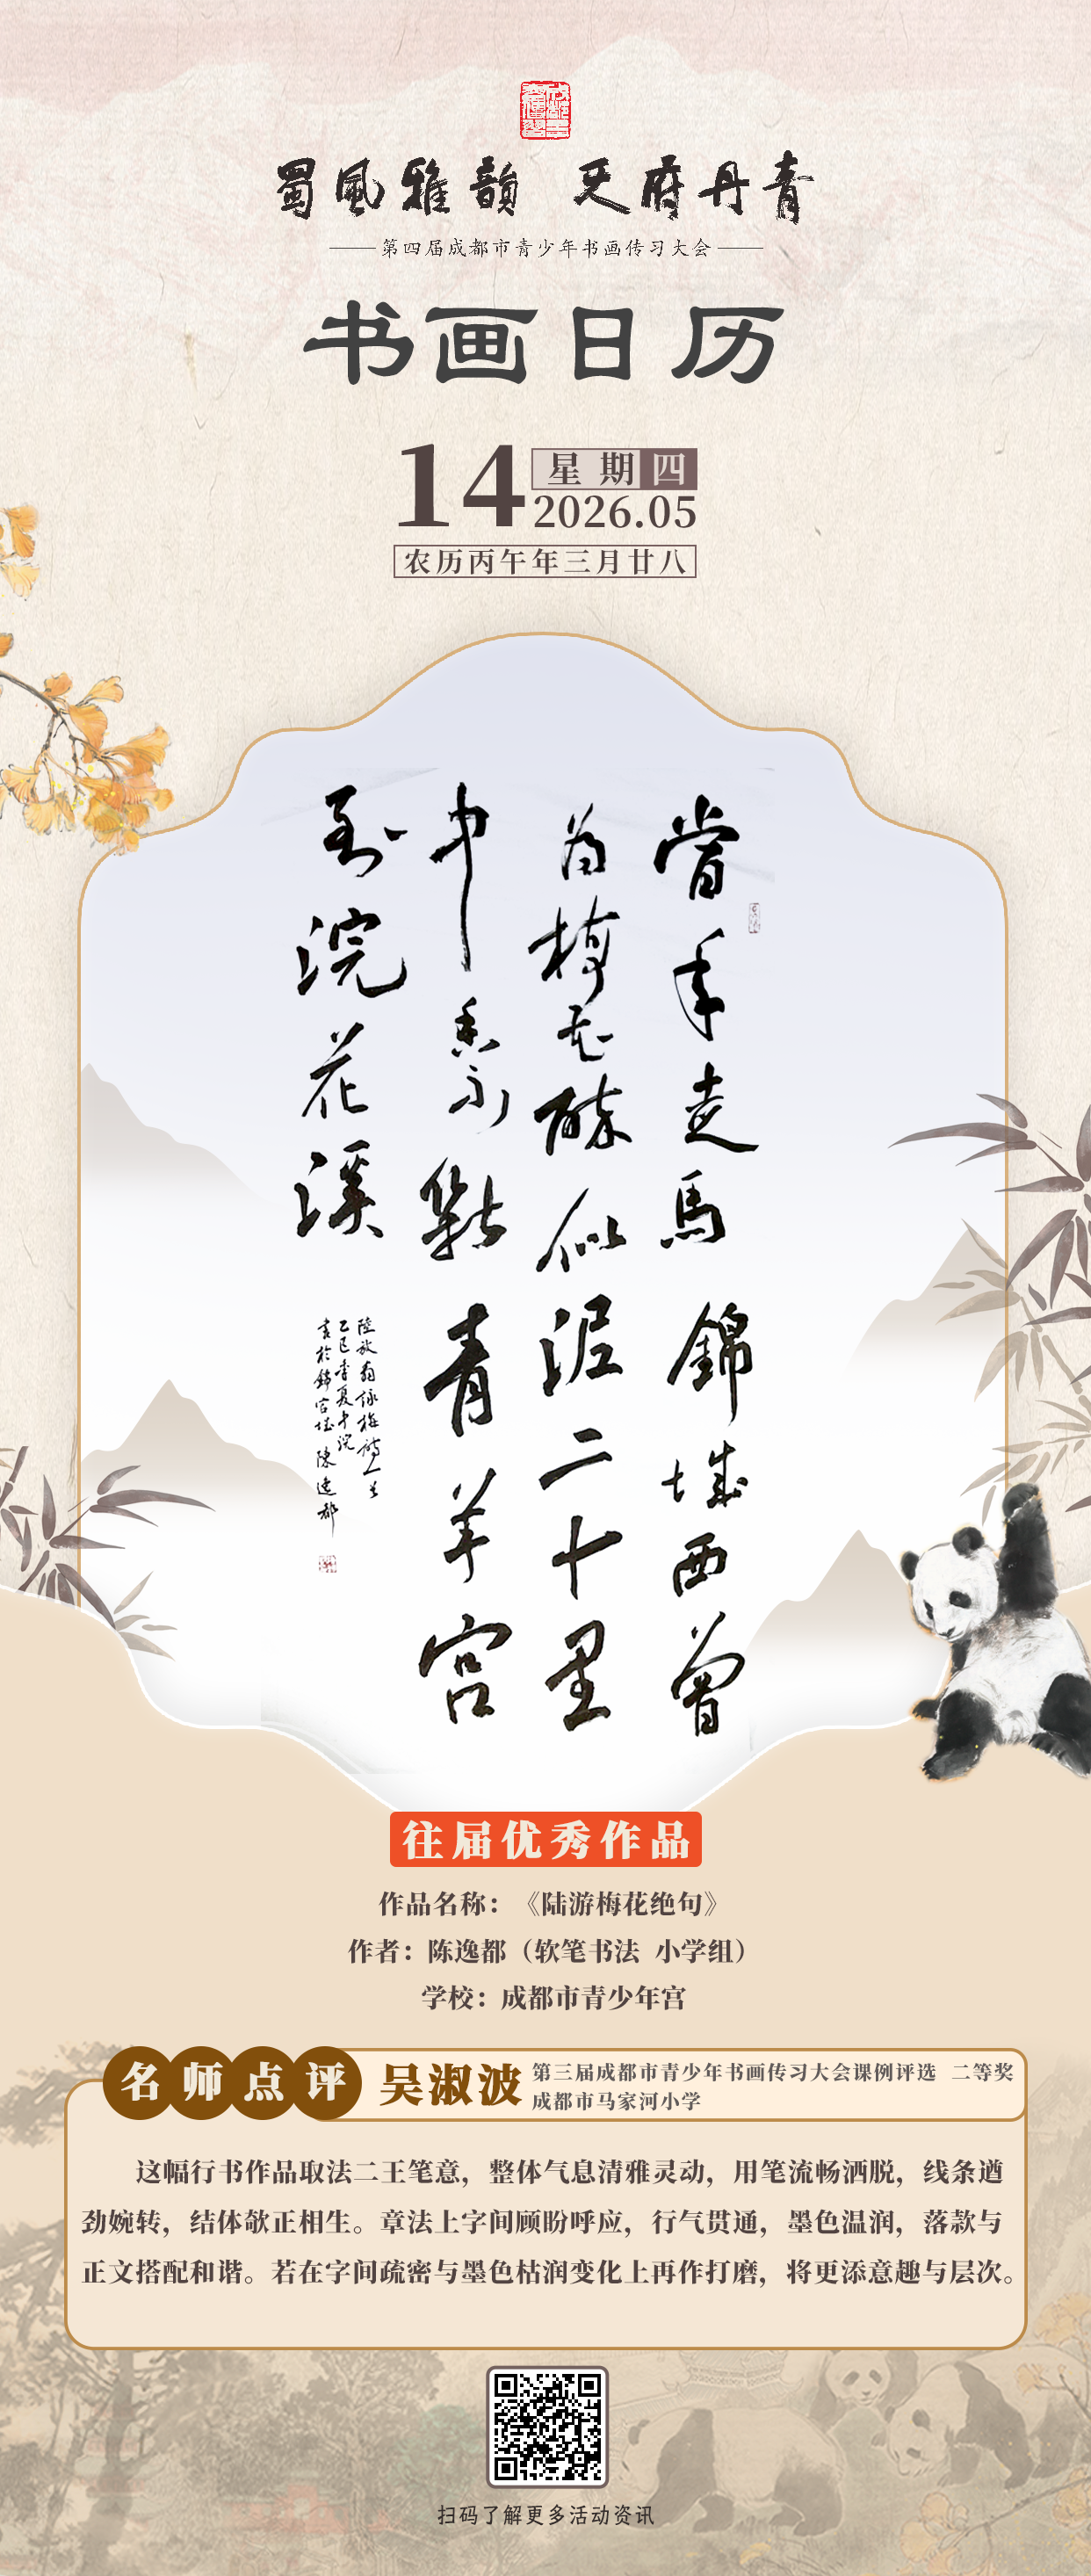 蜀風雅韻 天府丹青
第四届成都市青少年书画传习大会
书画日历
14
星期四
2026.05
农历丙午年三月廿八
當年走馬錦城西曾
為梅花醉似泥二十里
中香不斷青羊宮
到浣花溪
陸放翁詠梅詩一首
乙巳季夏中浣
書於錦官城 陳逸都
往届优秀作品
作品名称：《陆游梅花绝句》
作者：陈逸都（软笔书法 小学组）
学校：成都市青少年宫
名师点评
吴淑波
第三届成都市青少年书画传习大会课例评选 二等奖
成都市马家河小学
这幅行书作品取法二王笔意，整体气息清雅灵动，用笔流畅洒脱，线条遒
劲婉转，结体欹正相生。章法上字间顾盼呼应，行气贯通，墨色温润，落款与
正文搭配和谐。若在字间疏密与墨色枯润变化上再作打磨，将更添意趣与层次。
扫码了解更多活动资讯